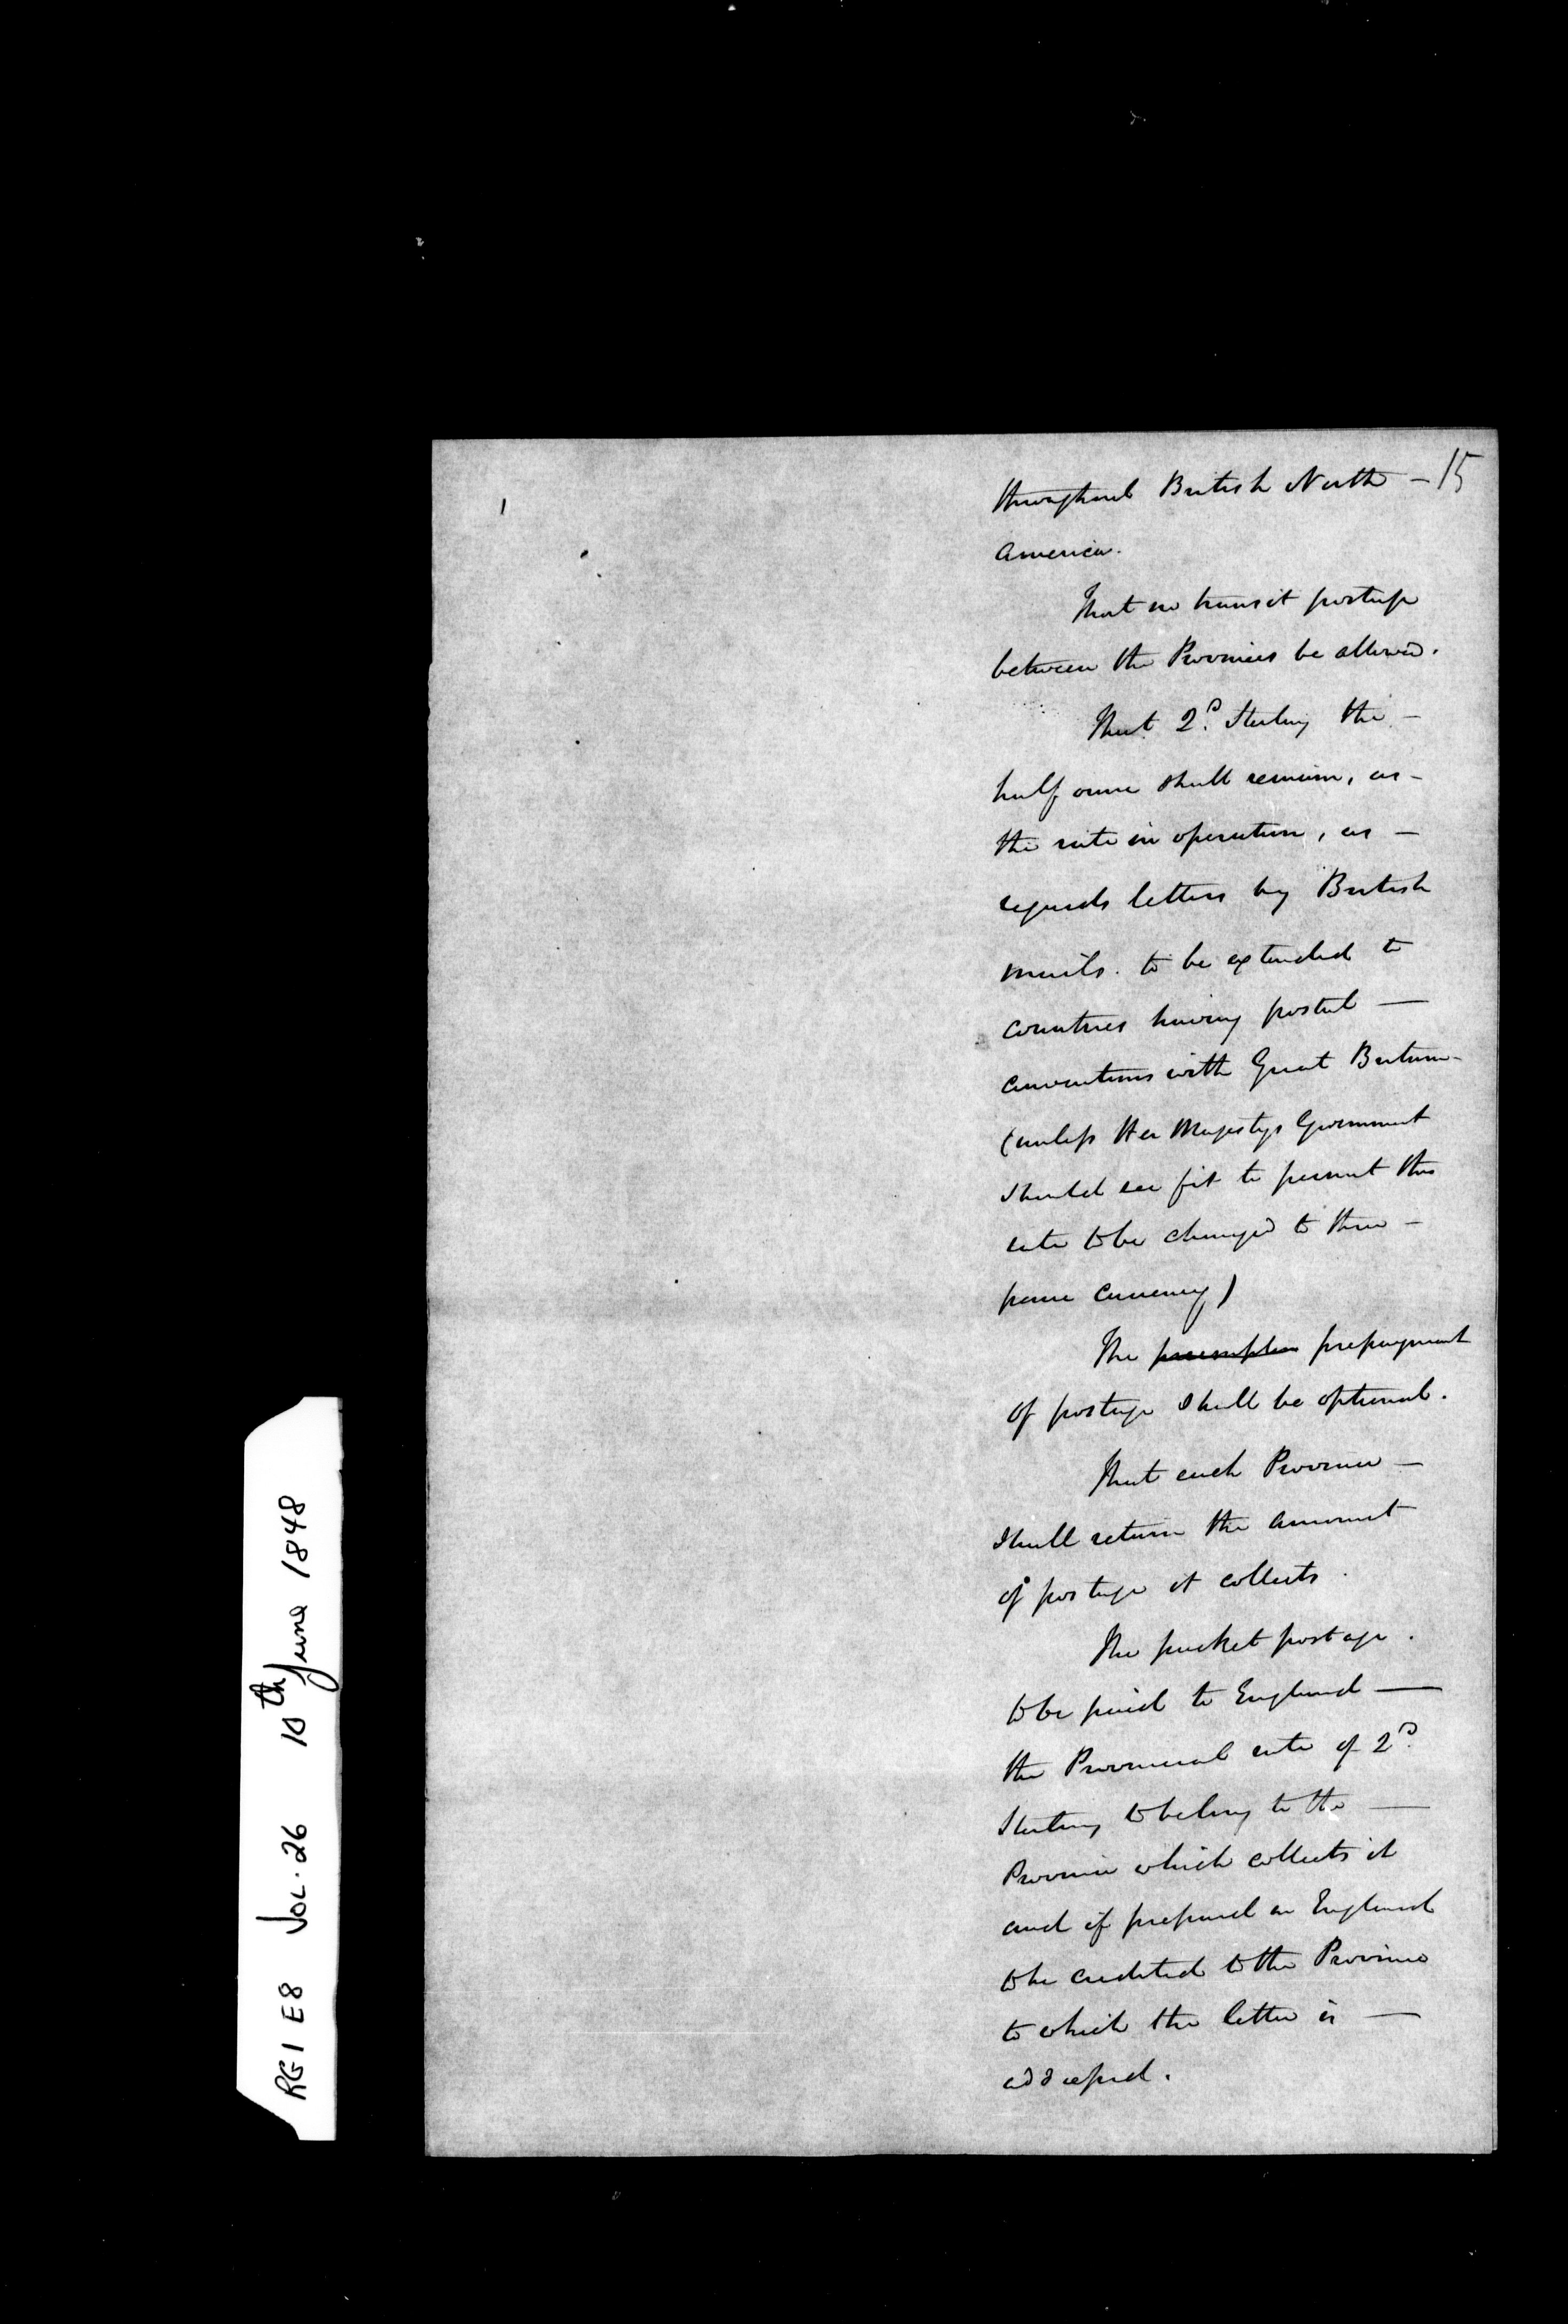 15
throughout British North —
America.
That no transit postage
between the Provinces be allowed.
That 2d. Sterling the —
half ounce shall remain, as —
the rate in operation, as —
regards letters by British
mails. to be extended to
countries having postal —
conventions with Great Britain —
(unless Her Majestys Government
should see fit to permit this
rate to be changed to three —
pence currency)
The prepayment
of postage shall be optional.
That each Province —
shall retain the amount
of postage it collects.
The packet postage.
to be paid to England —
the Provincial rate of 2d.
Sterling to belong to the —
Province which collects it
and if prepaid in England
to be credited to the Province
to which the letter is —
addressed.
RG1 E8 VOL. 26 10th June 1848